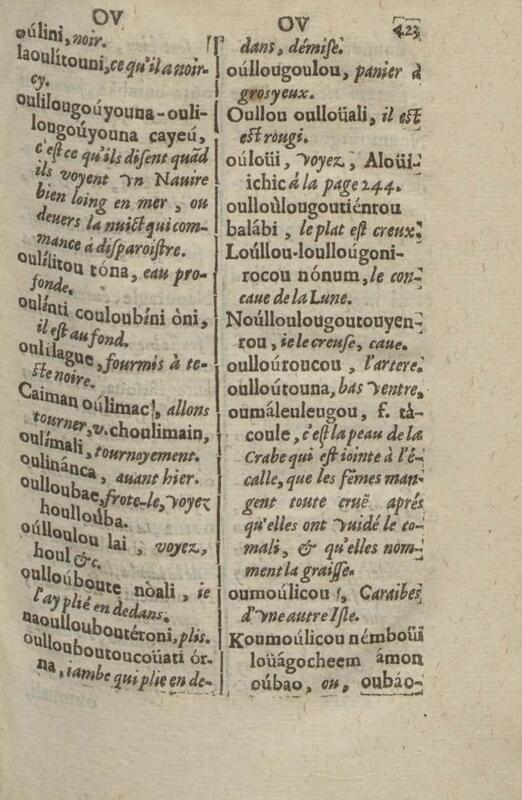 OV
oúlini, noir.
laoulítouni, ce qu'il a noir-
cy.
oulilougoúyouna-ouli-
lougoúyouna cayeú,
c'est ce qu'ils disent quãd
ils voyent vn Nauire
bien loing en mer, ou
deuers la nuict qui com-
mance à disparoistre.
oulílitou tóna, eau pro-
fonde.
oulínti couloubíni òni,
il est au fond.
oulílague, fourmis à te-
ste noire.
Caiman oúlimac!, allons
tourner, v. choulimain,
oulímali, tournoyement.
oulinánca, auant hier.
oulloubae, frote-le, voyez
houllouba.
oúlloulou lai, voyez,
houl &c.
oulloúboute nòali, ie
l'ay plié en dedans.
naoullouboutéroni, plis.
oulloubout­oucoüati ór-
na, iambe qui plie en de-
OV
423
dans, démise.
oúllougoulou, panier à
grosyeux.
Oullou oulloüali, il est
est rougi.
oúloüi, voyez, Aloüi-
ichic á la page 244.
oulloùlougoutiénrou
balábi, le plat est creux.
Loúllou-loullougoni-
rocou nónum, le con-
caue de la Lune.
Noúlloulougoutouyen-
rou, ie le creuse, caue.
oulloúroucou, l'artere.
oulloútouna, bas ventre,
oumáleuleugou, f. tà-
coule, c'est la peau de la
Crabe qui est iointe à l'é-
calle, que les fẽmes man-
gent toute cruë aprés
qu'elles ont vuidé le to-
mali, & qu'elles nom-
ment la graisse.
oumoúlicou!, Caraibes
d'vne autre Isle.
Koumoúlicou némboüi
loüágocheem ámon
oúbao, ou, oubáo-